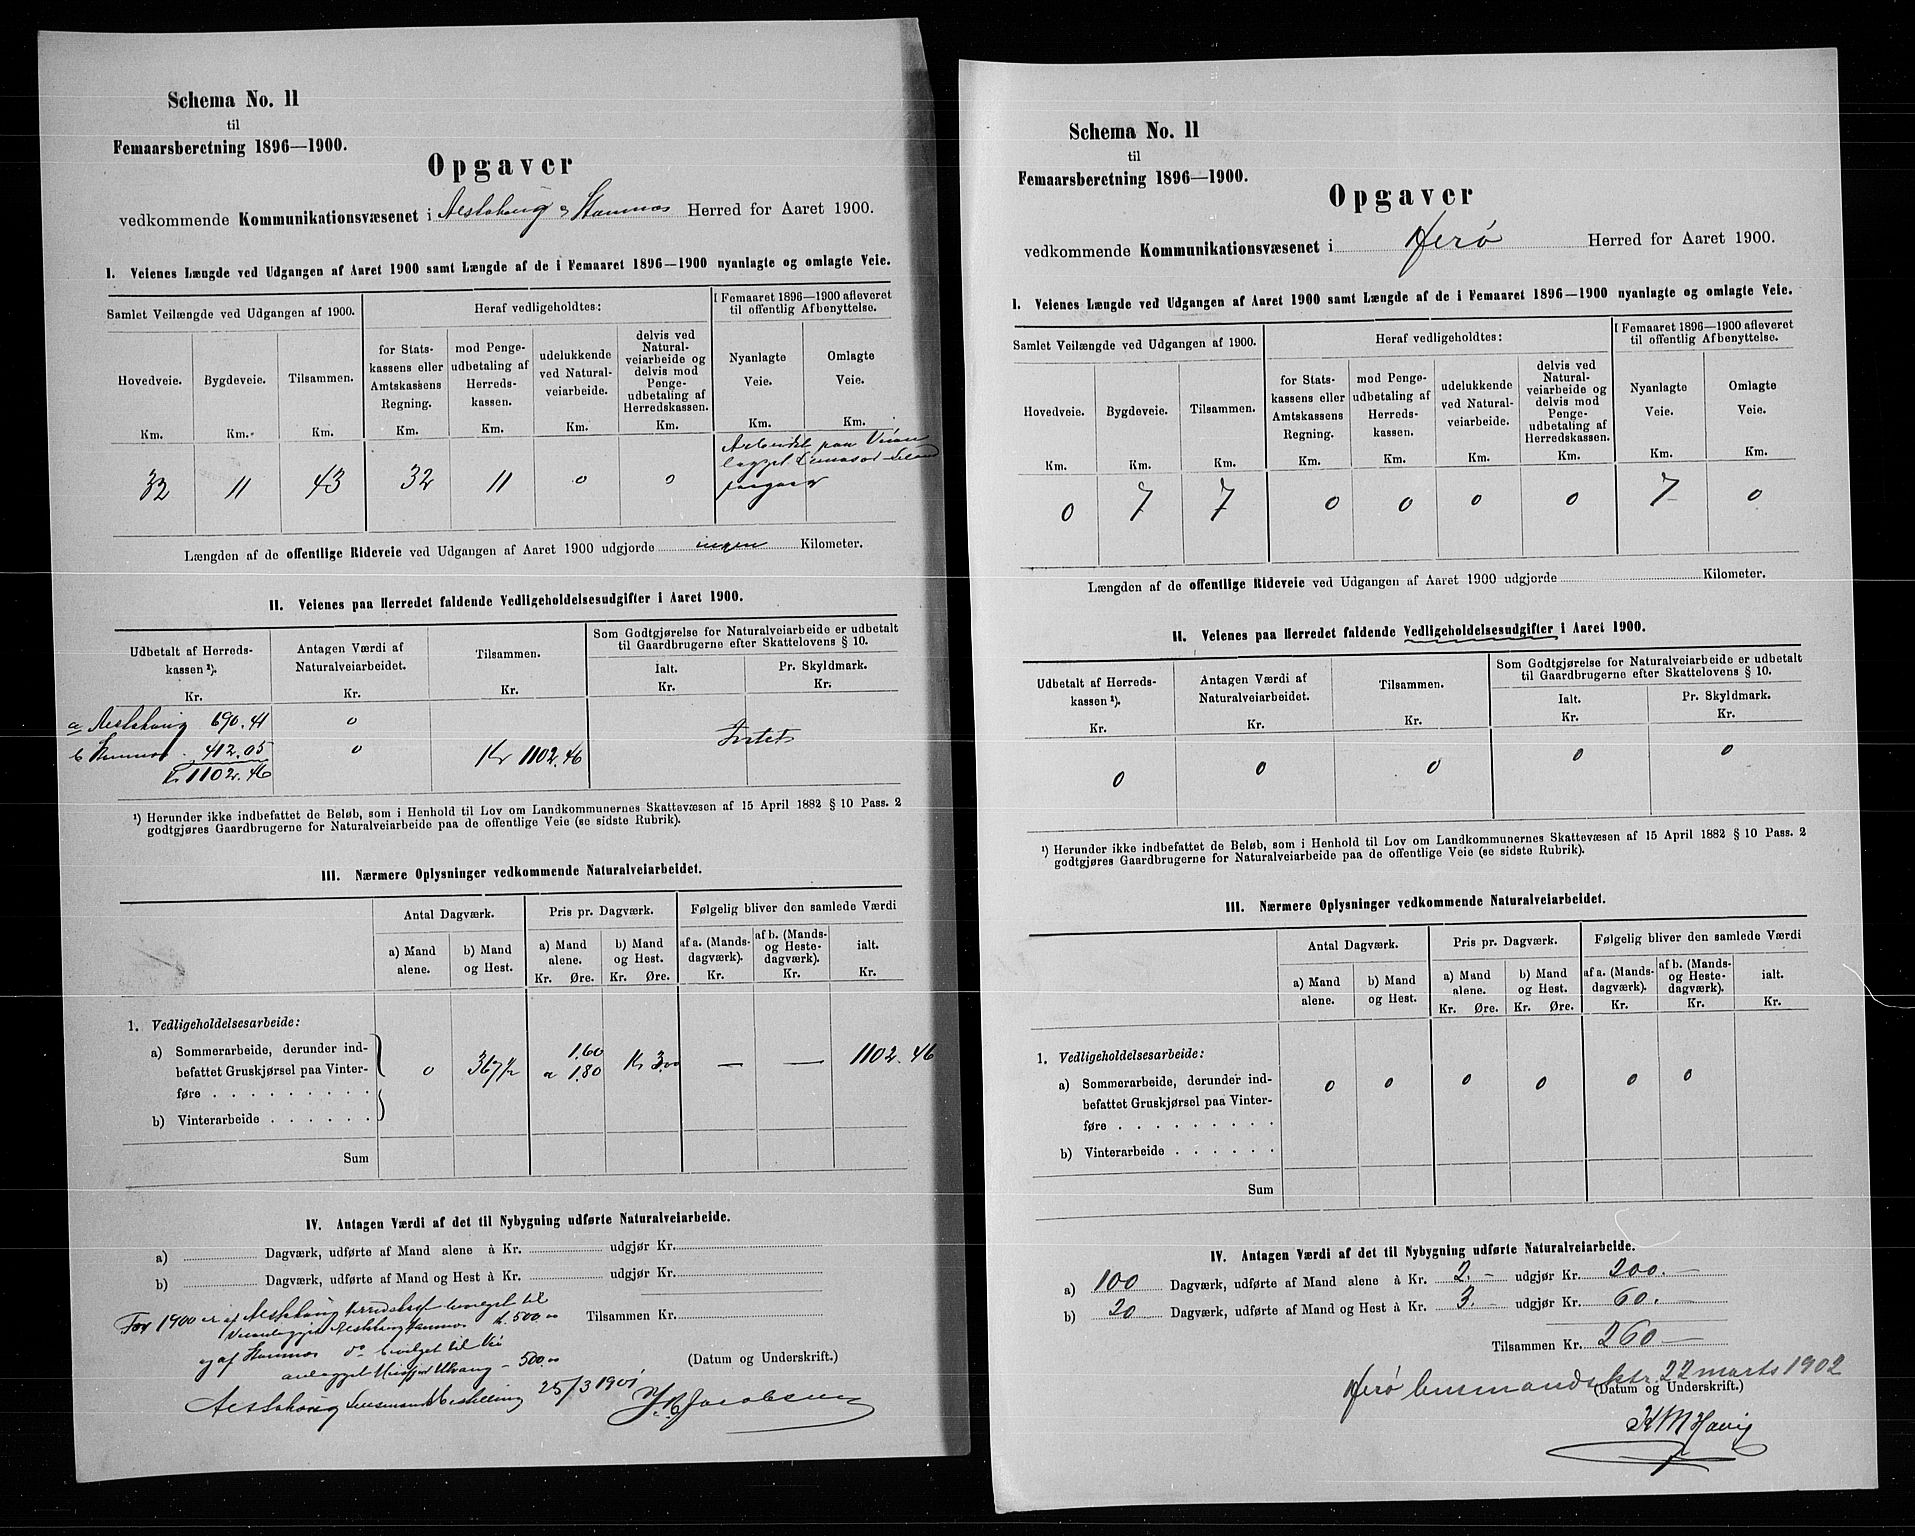 Schema No. 11
til
Femaarsberetning 1896—1900.
Opgaver
vedkommende Kommunikationsvæsenet i Alstahoug & Stamnes Herred for Aaret 1900.
I. Veienes Længde ved Udgangen af Aaret 1900 samt Længde af de i Femaaret 1896—1900 nyanlagte og omlagte Veie.
Samlet Veilængde ved Udgangen af 1900.
Heraf vedligeholdtes:
I Femaaret 1896—1900 afleveret til offentlig Afbenyttelse.
Hovedveie. Bygdeveie. Tilsammen.
for Statskassens eller Amtskassens Regning.
mod Pengeudbetaling af Herredskassen.
udelukkende ved Naturalveiarbeide.
delvis ved Naturalveiarbeide og delvis mod Pengeudbetaling af Herredskassen.
Nyanlagte Veie.
Omlagte Veie.
Km. Km. Km. Km. Km. Km. Km. Km. Km.
32 11 43 32 11 0 0 Arbeidet paa Veian
lægget
paagaar
Længden af de offentlige Rideveie ved Udgangen af Aaret 1900 udgjorde ingen Kilometer.
II. Veienes paa Herredet faldende Vedligeholdelsesudgifter i Aaret 1900.
Udbetalt af Herredskassen ¹). Kr.
Antagen Værdi af Naturalveiarbeidet. Kr.
Tilsammen. Kr.
Som Godtgjørelse for Naturalveiarbeide er udbetalt til Gaardbrugerne efter Skattelovens § 10.
Ialt. Kr.
Pr. Skyldmark. Kr.
a Alstahoug 690.41 0
b Stamnes 412.05 0 Kr 1102.46 Intet
Kr 1102.46
¹) Herunder ikke indbefattet de Beløb, som i Henhold til Lov om Landkommunernes Skattevæsen af 15 April 1882 § 10 Pass. 2
godtgjøres Gaardbrugerne for Naturalveiarbeide paa de offentlige Veie (se sidste Rubrik).
III. Nærmere Oplysninger vedkommende Naturalveiarbeidet.
Antal Dagværk. Pris pr. Dagværk. Følgelig bliver den samlede Værdi
a) Mand alene.
b) Mand og Hest.
a) Mand alene. Kr. Øre.
b) Mand og Hest. Kr. Øre.
af a. (Mandsdagværk). Kr.
af b. (Mands- og Hestedagværk). Kr.
ialt. Kr.
1. Vedligeholdelsesarbeide:
a) Sommerarbeide, derunder ind-
befattet Gruskjørsel paa Vinter-
føre
0 1.60 a 1.80 Kr 3.00 — — 1102.46
b) Vinterarbeide
Sum
IV. Antagen Værdi af det til Nybygning udførte Naturalveiarbeide.
a) Dagværk, udførte af Mand alene à Kr. udgjør Kr.
b) Dagværk, udførte af Mand og Hest à Kr. udgjør Kr.
Tilsammen Kr.
For 1900 er af Alstahoug Herredskasse bevilget til
Veianlægget Alstahoug Stamnes Kr. 500,00
og af Stamnes do bevilget til Vei
anlægget – 500.00
(Datum og Underskrift.)
Alstahoug Lensmandsbestilling 25/3 1901
Jacobsen
Schema No. 11
til
Femaarsberetning 1896—1900.
Opgaver
vedkommende Kommunikationsvæsenet i Herø Herred for Aaret 1900.
I. Veienes Længde ved Udgangen af Aaret 1900 samt Længde af de i Femaaret 1896—1900 nyanlagte og omlagte Veie.
Samlet Veilængde ved Udgangen af 1900.
Heraf vedligeholdtes:
I Femaaret 1896—1900 afleveret til offentlig Afbenyttelse.
Hovedveie. Bygdeveie. Tilsammen.
for Statskassens eller Amtskassens Regning.
mod Pengeudbetaling af Herredskassen.
udelukkende ved Naturalveiarbeide.
delvis ved Naturalveiarbeide og delvis mod Pengeudbetaling af Herredskassen.
Nyanlagte Veie.
Omlagte Veie.
Km. Km. Km. Km. Km. Km. Km. Km. Km.
0 7 7 0 0 0 0 7 0
Længden af de offentlige Rideveie ved Udgangen af Aaret 1900 udgjorde Kilometer.
II. Veienes paa Herredet faldende Vedligeholdelsesudgifter i Aaret 1900.
Udbetalt af Herredskassen ¹). Kr.
Antagen Værdi af Naturalveiarbeidet. Kr.
Tilsammen. Kr.
Som Godtgjørelse for Naturalveiarbeide er udbetalt til Gaardbrugerne efter Skattelovens § 10.
Ialt. Kr.
Pr. Skyldmark. Kr.
0 0 0 0 0
¹) Herunder ikke indbefattet de Beløb, som i Henhold til Lov om Landkommunernes Skattevæsen af 15 April 1882 § 10 Pass. 2
godtgjøres Gaardbrugerne for Naturalveiarbeide paa de offentlige Veie (se sidste Rubrik).
III. Nærmere Oplysninger vedkommende Naturalveiarbeidet.
Antal Dagværk. Pris pr. Dagværk. Følgelig bliver den samlede Værdi
a) Mand alene.
b) Mand og Hest.
a) Mand alene. Kr. Øre.
b) Mand og Hest. Kr. Øre.
af a. (Mandsdagværk). Kr.
af b. (Mands- og Hestedagværk). Kr.
ialt. Kr.
1. Vedligeholdelsesarbeide:
a) Sommerarbeide, derunder ind-
befattet Gruskjørsel paa Vinter-
føre
0 0 0 0 0 0
b) Vinterarbeide
Sum
IV. Antagen Værdi af det til Nybygning udførte Naturalveiarbeide.
a) 100 Dagværk, udførte af Mand alene à Kr. 2.– udgjør Kr. 200.–
b) 20 Dagværk, udførte af Mand og Hest à Kr. 3.– udgjør Kr. 60.–
Tilsammen Kr. 260 –
Herø lensmandsktr. 22 marts 1902
(Datum og Underskrift.)
K M Havig